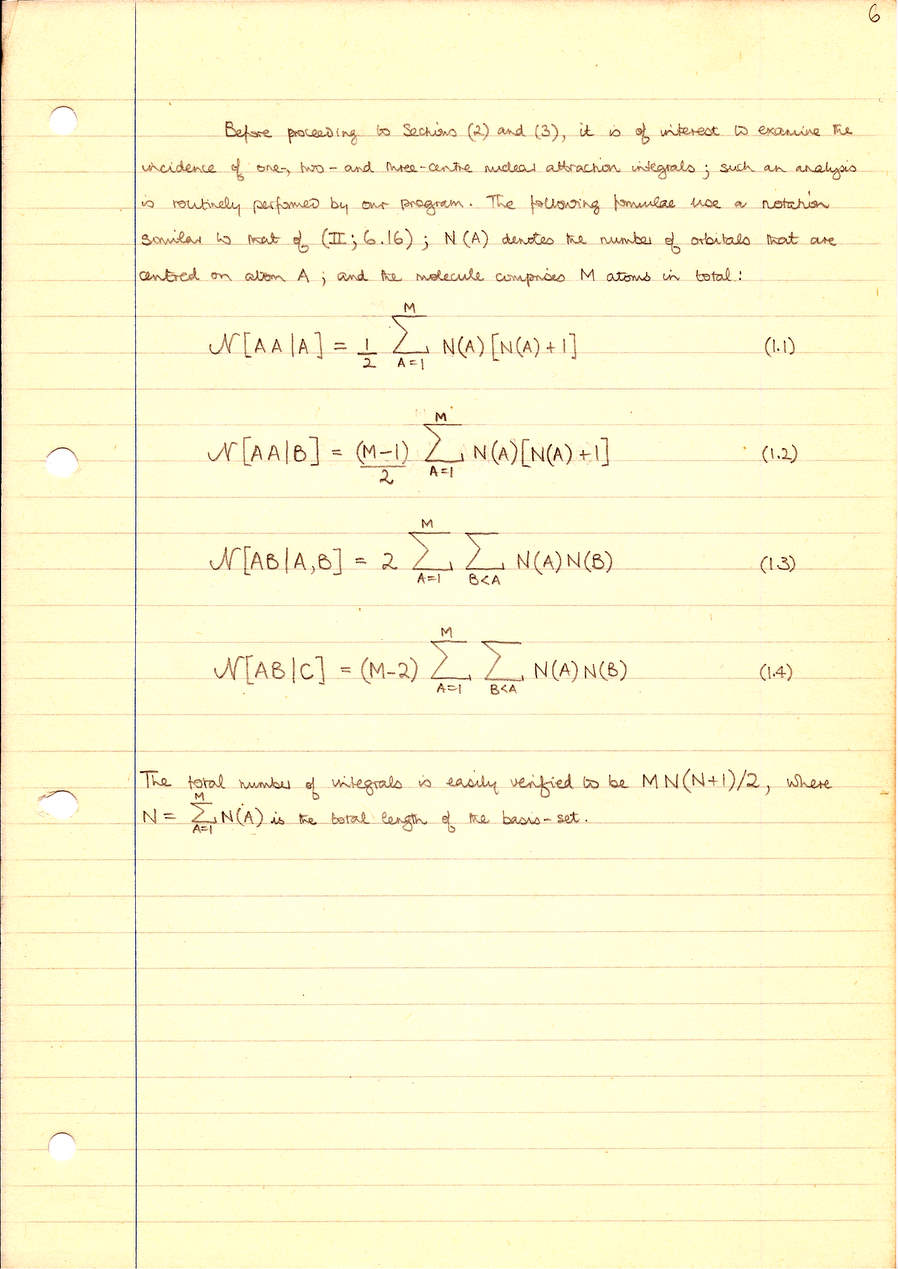 6
Before proceeding to Sections (2) and (3), it is of interest to examine the
incidence of one-, two- and three-centre nuclear attraction integrals ; such an analysis
is routinely performed by our program. The following formulae use a notation
similar to that of (II; 6.16) ; N(A) denotes the number of orbitals that are
centred on atom A ; and the molecule comprises M atoms in total :
𝒩[AA|A] = 1/2 ∑_{A=1}^{M} N(A)[N(A)+1] (1.1)
𝒩[AA|B] = (M-1)/2 ∑_{A=1}^{M} N(A)[N(A)+1] (1.2)
𝒩[AB|A,B] = 2 ∑_{A=1}^{M} ∑_{B<A} N(A)N(B) (1.3)
𝒩[AB|C] = (M-2) ∑_{A=1}^{M} ∑_{B<A} N(A)N(B) (1.4)
The total number of integrals is easily verified to be MN(N+1)/2, where
N = ∑_{A=1}^{M} N(A) is the total length of the basis-set.